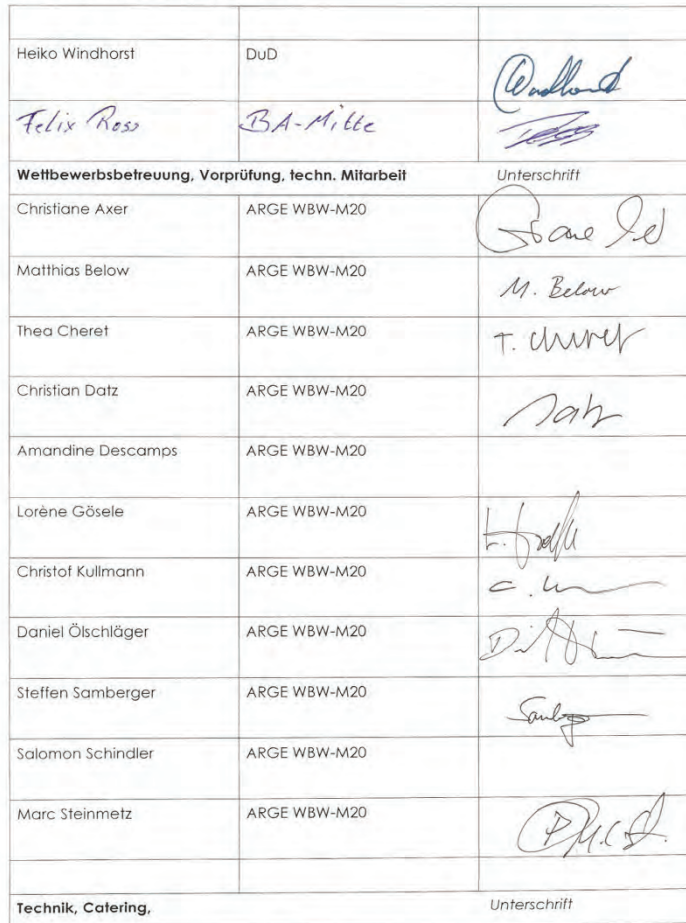 Heiko Windhorst DuD
Felix Ross BA-Mitte
Wettbewerbsbetreuung, Vorprüfung, techn. Mitarbeit Unterschrift
Christiane Axer ARGE WBW-M20
Matthias Below ARGE WBW-M20 M. Below
Thea Cheret ARGE WBW-M20 T. Cheret
Christian Datz ARGE WBW-M20 Datz
Amandine Descamps ARGE WBW-M20
Lorène Gösele ARGE WBW-M20
Christof Kullmann ARGE WBW-M20
Daniel Ölschläger ARGE WBW-M20
Steffen Samberger ARGE WBW-M20
Salomon Schindler ARGE WBW-M20
Marc Steinmetz ARGE WBW-M20
Technik, Catering, Unterschrift